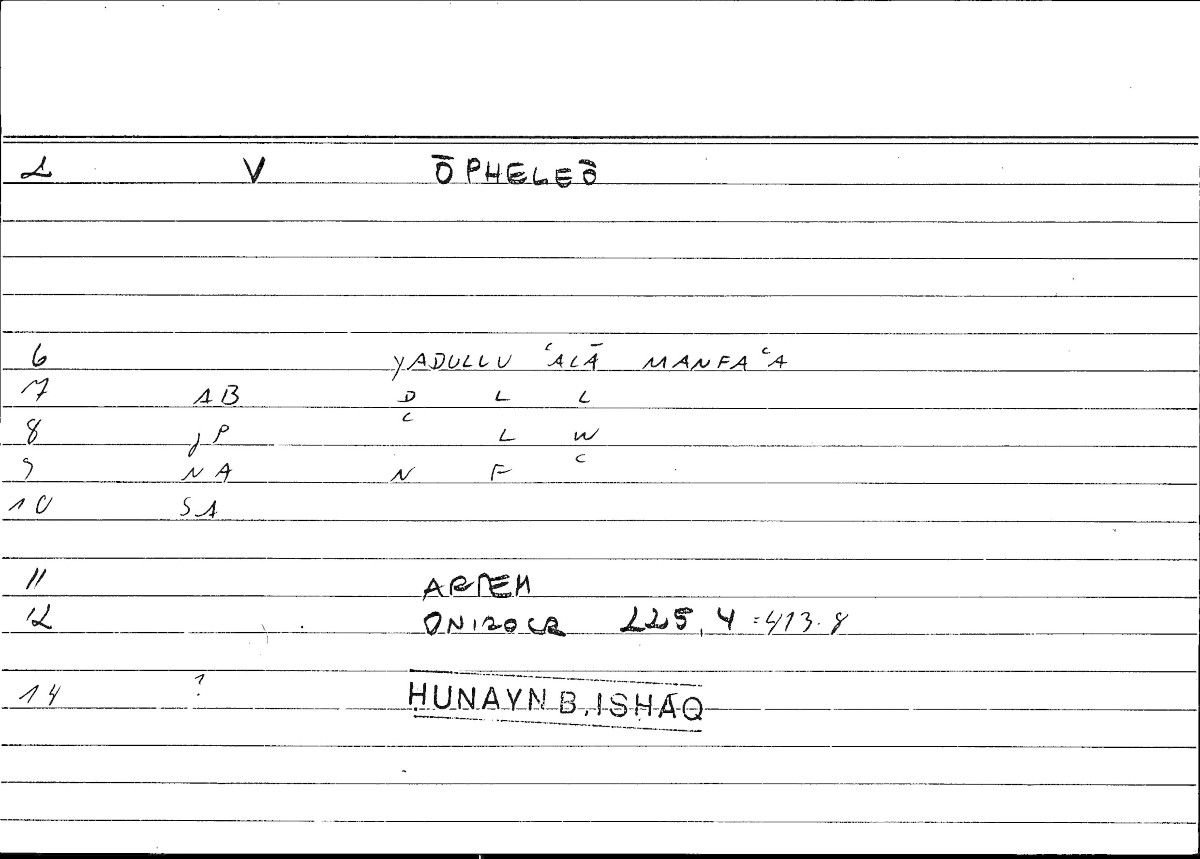 2 V ŌPHELEŌ
6 YADULLU ʿALĀ MANFAʿA
7 AB D L L
8 JP ʿ L W
9 NA N F ʿ
10 SA
11 ARTEM
12 ONIROCR 225, 4 = 413.8
14 ? HUNAYN B. ISHĀQ